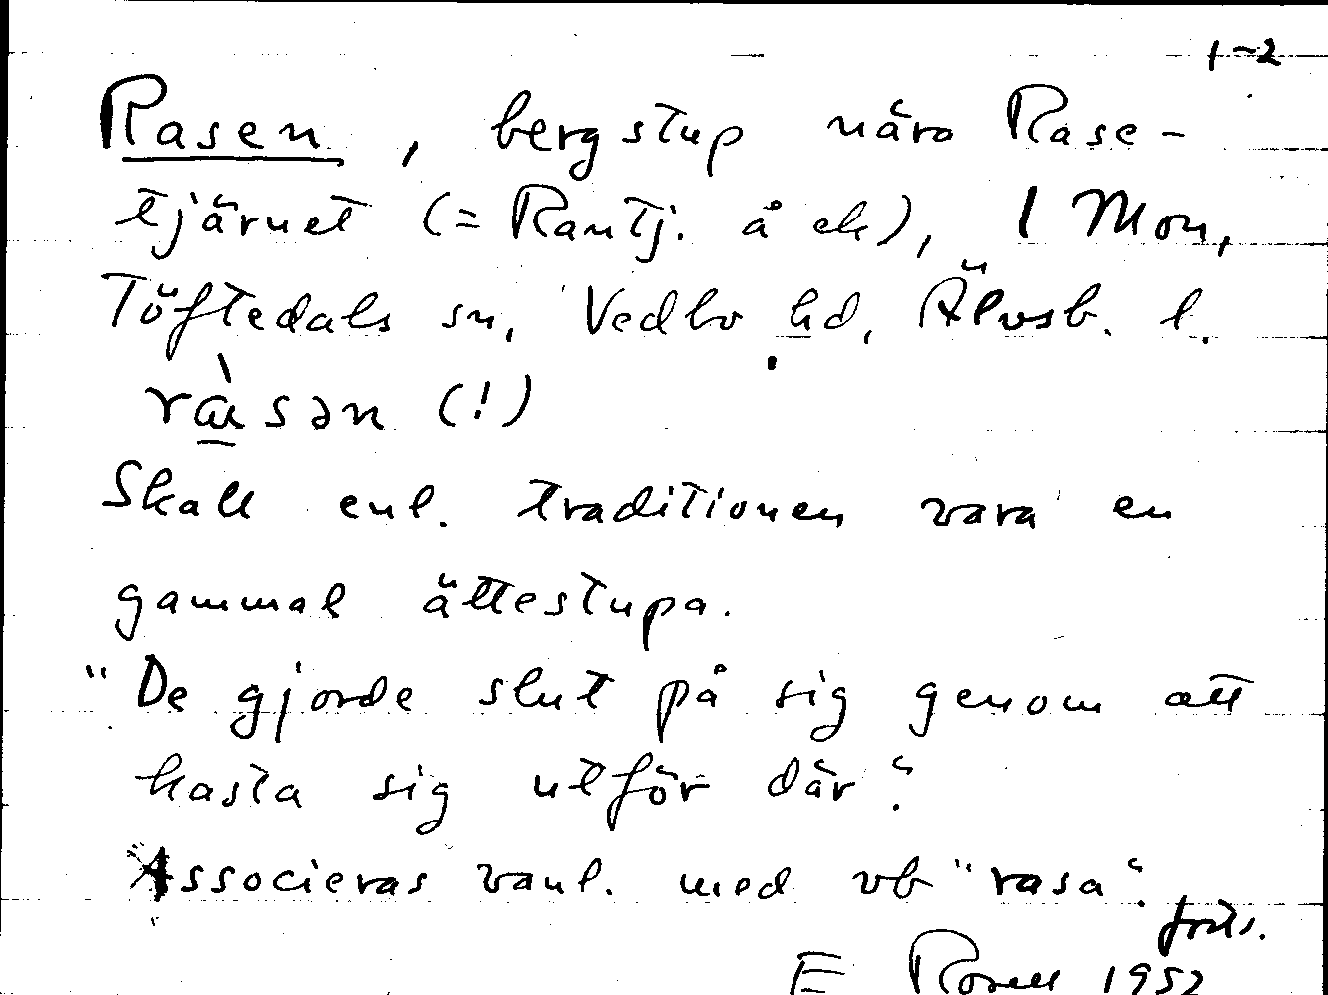 1-2
Rasen, bergstup nära Rase-
tjärnet (= Rantj. å ek), 1 Mon,
Töftedals sn, Vedbo hd, Älvsb. l.
sən (!)
Skall enl. traditionen vara en
gammal ättestupa.
"De gjorde slut på sig genom att
kasta sig utför där".
Associeras vanl. med vb "rasa".
forts.
E 1952